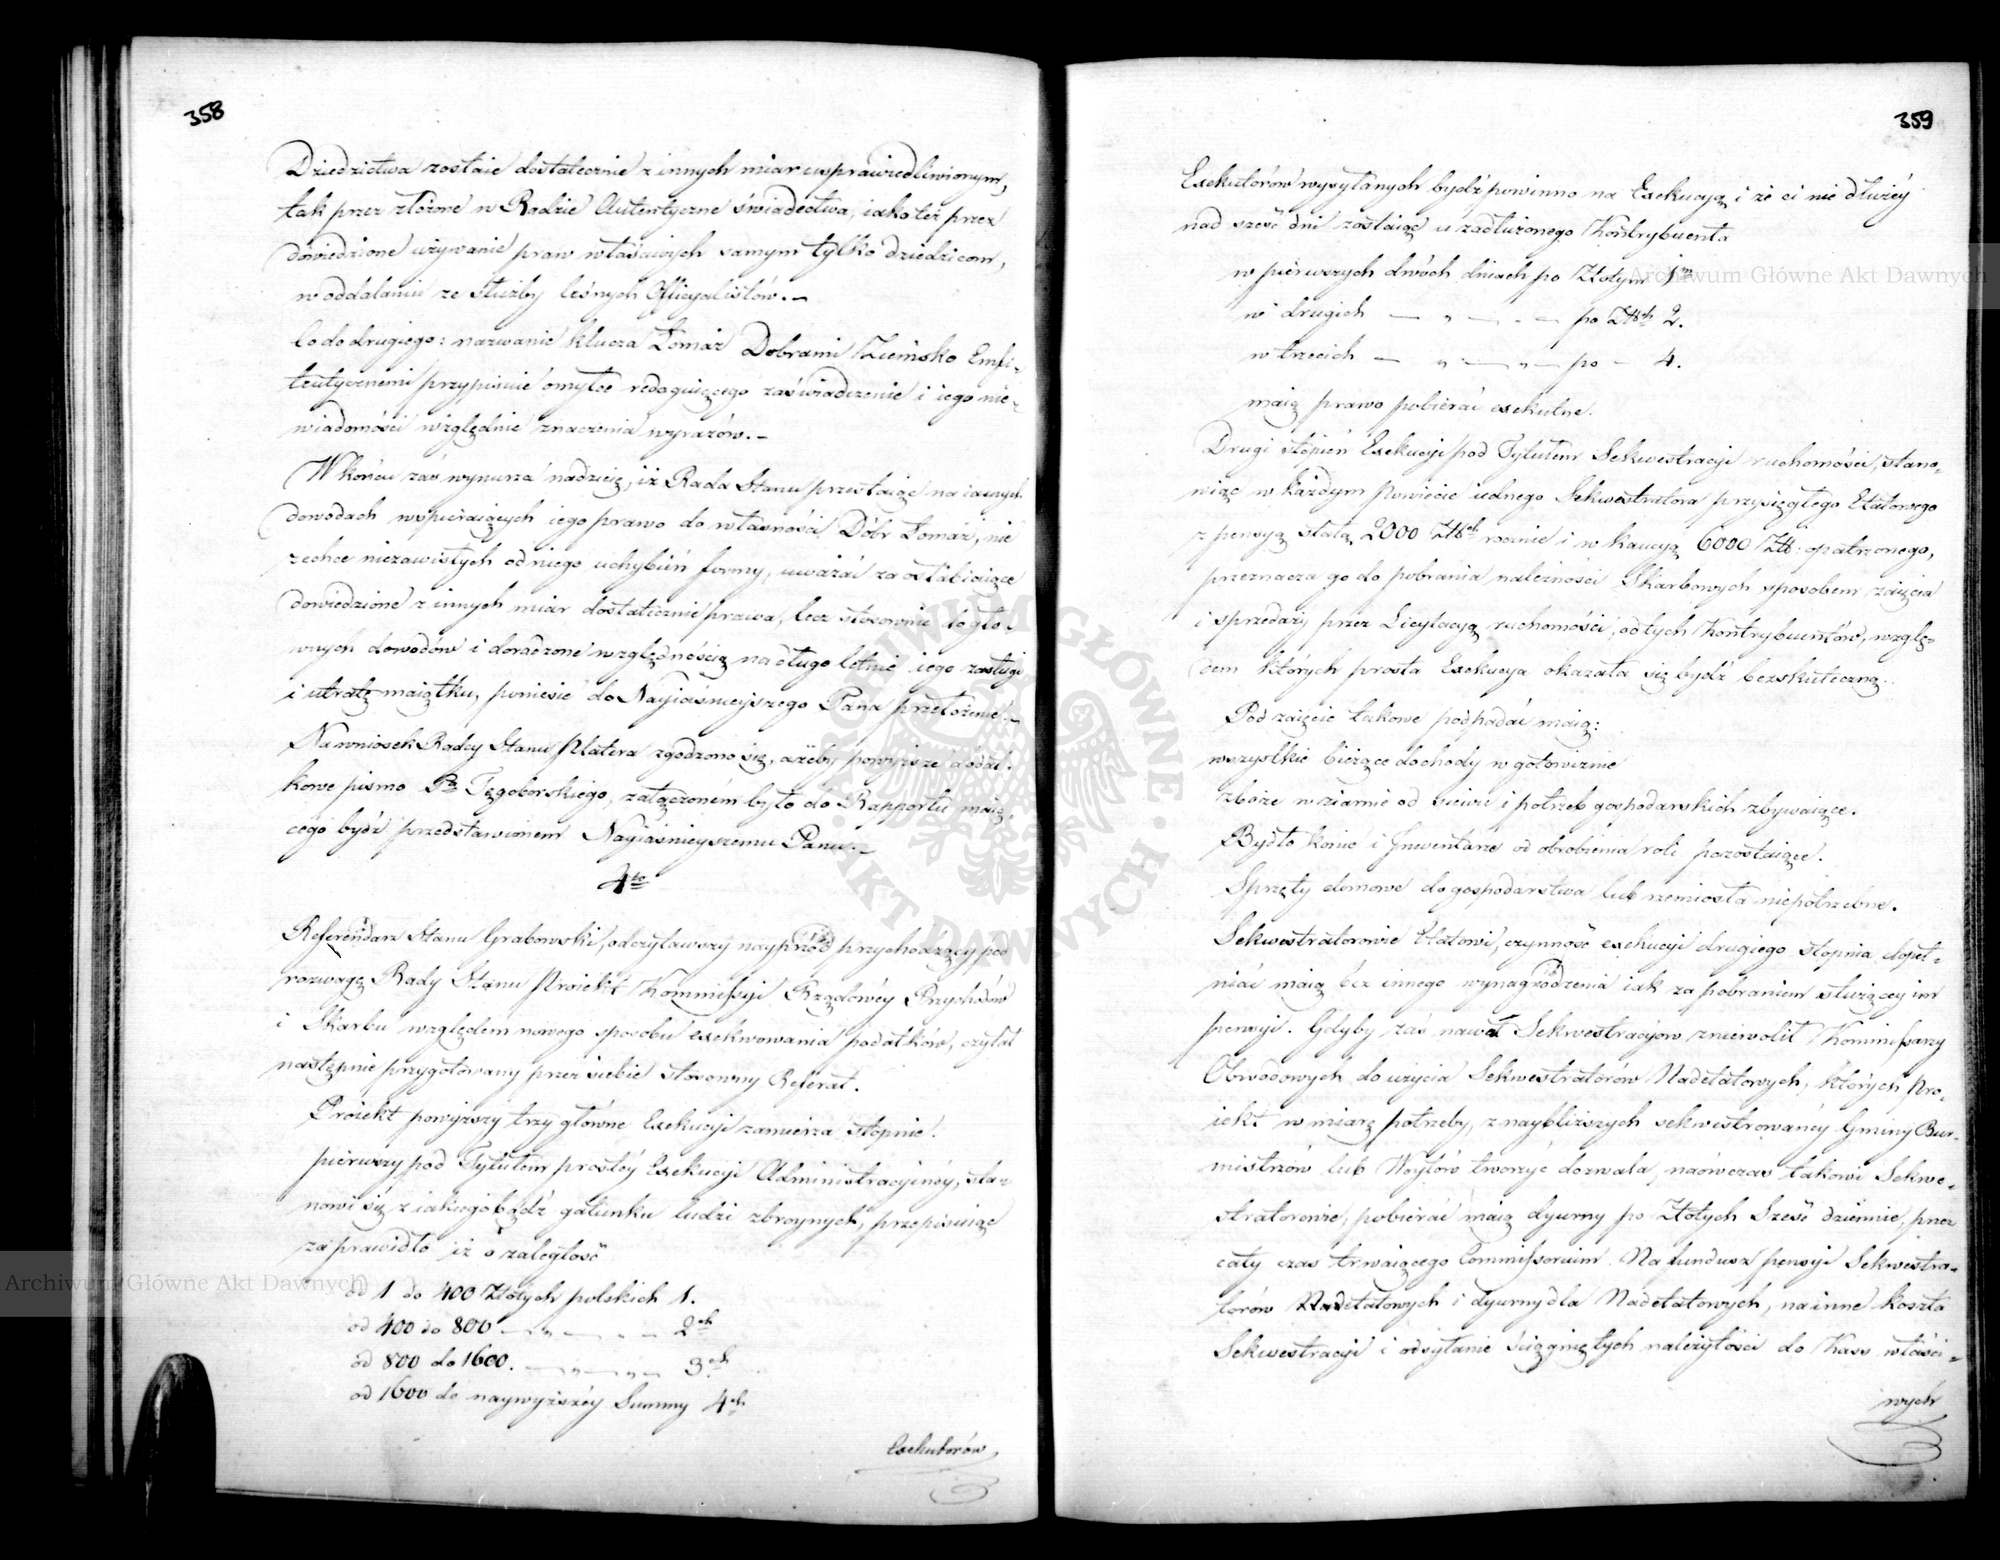 358
Dziedzictwa zostaie dostatecznie z innych miar usprawiedliwionym,
tak przez złożone w Radzie Autentyczne świadectwa, iako też przez
dowiedzione używanie praw właściwych samym tylko dziedzicom,
w oddalaniu ze służby leśnych Officyalistów. –
Co do drugiego: nazwanie klucza Łomaz Dobrami Ziemsko Emfi-
teutycznemi przypisuie omyłce redaguiącego zaświadczenie i iego nie-
wiadomości względnie znaczenia wyrazów. –
W końcu zaś wynurza nadzieię, iż Rada Stanu przestaiąc na iasnych
dowodach wspieraiących iego prawo do własności Dóbr Łomaz, nie
zechce niezawisłych od niego uchybień formy, uważać za osłabiaiące
dowiedzione z innych miar dostatecznie prawa, lecz stosownie do głó-
wnych dowodów i doradzone względnością na długo letnie iego zasługi
i utratę maiątku, poniesie do Nayiaśnieyszego Pana przełożenie. –
Na wniosek Radcy Stanu Platera zgodzono się, ażeby powyższe dodat-
kowe pismo P. Tęgoborskiego, załączoném było do Rapportu maią-
cego bydź przedstawionem Nayiaśnieyszemu Panu. –
4to
Referendarz Stanu Grabowski, odczytawszy nayprzód przychodzący pod
rozwagę Rady Stanu Proiekt Kommissyi Rządowéy Przychodów
i Skarbu względem nowego sposobu exekwowania podatków, czytał
następnie przygotowany przez siebie stosowny Referat.
Proiekt powyższy trzy główne Exekucyi zamierza stopnie.
pierwszy pod Tytułem prostéy Exekucyi Administracyinéy, sta-
nowi się z iakiegobądź gatunku ludzi zbroynych, przepisuiąc
za prawidło iż o zaległość
od 1 do 400 Złotych polskich 1.
od 400 do 800 — „ — „ — 2ch
od 800 do 1600. — „ — „ — 3ch
od 1600 do naywyższéy Summy 4ch
Exekutorów
359
Exekutorów wysyłanych bydź powinno na Exekucyą i że ci nie dłużéy
nad sześć dni zostaiąc u zadłużonego Kontrybuenta
w pierwszych dwóch dniach po Złotym 1m
w drugich — „ — „ — po Złtch 2.
w trzecich — „ — „ — po — 4.
maią prawo pobierać exekutne.
Drugi stopień Exekucyi pod Tytułem Sekwestracyi ruchomości, stano-
wiąc w każdym Powiecie iednego Sekwestratora przysięgłego Etatowego
z pensyą stałą 2000 Złtch rocznie i w kaucyą 6000 Złt: opatrzonego,
przeznacza go do pobrania należności Skarbowych sposobem zaięcia
i sprzedaży przez Licytacyą ruchomości, od tych Kontrybuentów, wzglę-
dem których prosta Exekucya okazała się bydź bezskuteczną.
Pod zaięcie takowe podpadać maią:
wszystkie bieżące dochody w gotowiznie
zboże w ziarnie od siewu i potrzeb gospodarskich zbywaiące.
Bydło konie i Inwentarze od obrobienia roli pozostaiące.
Sprzęty domowe do gospodarstwa lub rzemiosła niepotrzebne.
Sekwestratorowie Etatowi, czynność exekucyi drugiego stopnia dopeł-
niać maią bez innego wynagrodzenia iak za pobraniem służącéy im
pensyi. Gdyby zaś nawał Sekwestracyow zniewolił Kommissarzy
Obwodowych do użycia Sekwestratorów Nadetatowych, których Pro-
iekt w miarę potrzeby, z naybliższych sekwestrowanéy Gminy Bur-
mistrzów lub Woytów tworzyć dozwala, naówczas takowi Sekwe-
stratorowie, pobierać maią dyurny po Złotych Sześć dziennie, przez
cały czas trwaiącego Commissorium. Na fundusz pensyi Sekwestra-
torów Nadetatowych i dyurny dla Nadetatowych, na inne koszta
Sekwestracyi i odsyłanie ściągniętych należytości do Kass właści-
wych